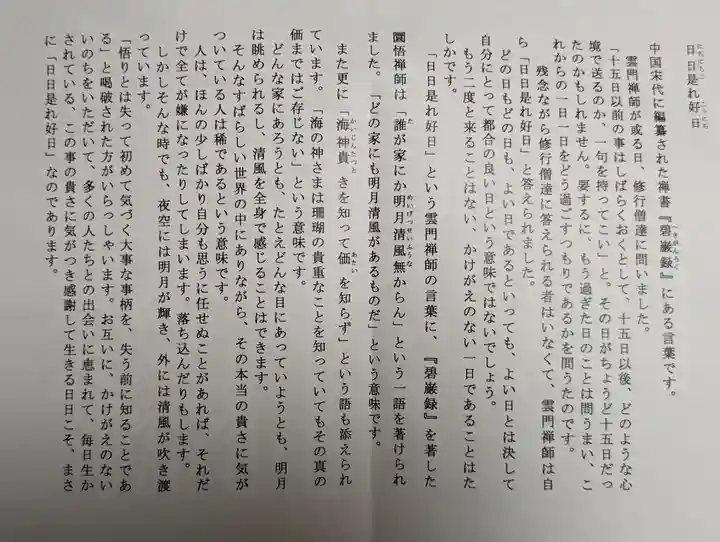 日日是れ好日
にちにちこれこうにち
中国宋代に編纂された禅書『碧巌録』にある言葉です。
へきがんろく
雲門禅師が或る日、修行僧達に問いました。
「十五日以前の事はしばらくおくとして、十五日以後、どのような心
境で送るのか、一句を持ってこい」と。その日がちょうど十五日だっ
たのかもしれません。要するに、もう過ぎた日のことは問うまい、こ
れからの一日一日をどう過ごすつもりであるかを問うたのです。
残念ながら修行僧達に答えられる者はいなくて、雲門禅師は自
ら「日日是れ好日」と答えられました。
どの日もどの日も、よい日であるといっても、よい日とは決して
自分にとって都合の良い日という意味ではないでしょう。
もう二度と来ることはない、かけがえのない一日であることはた
しかです。
「日日是れ好日」という雲門禅師の言葉に、『碧巌録』を著した
圜悟禅師は「誰が家にか明月清風無からん」という一語を著けられ
た めいげつせいふうな
ました。「どの家にも明月清風があるものだ」という意味です。
また更に「海神貴きを知って価を知らず」という語も添えられ
かいじんたっと あたい
ています。「海の神さまは珊瑚の貴重なことを知っていてもその真の
価まではご存じない」という意味です。
どんな家にあろうとも、たとえどんな日にあっていようとも、明月
は眺められるし、清風を全身で感じることはできます。
そんなすばらしい世界の中にありながら、その本当の貴さに気が
ついている人は稀であるという意味です。
人は、ほんの少しばかり自分も思うに任せぬことがあれば、それだ
けで全てが嫌になったりしてしまいます。落ち込んだりもします。
しかしそんな時でも、夜空には明月が輝き、外には清風が吹き渡
っています。
「悟りとは失って初めて気づく大事な事柄を、失う前に知ることであ
る」と喝破された方がいらっしゃいます。お互いに、かけがえのない
いのちをいただいて、多くの人たちとの出会いに恵まれて、毎日生か
されている、この事の貴さに気がつき感謝して生きる日日こそ、まさ
に「日日是れ好日」なのであります。